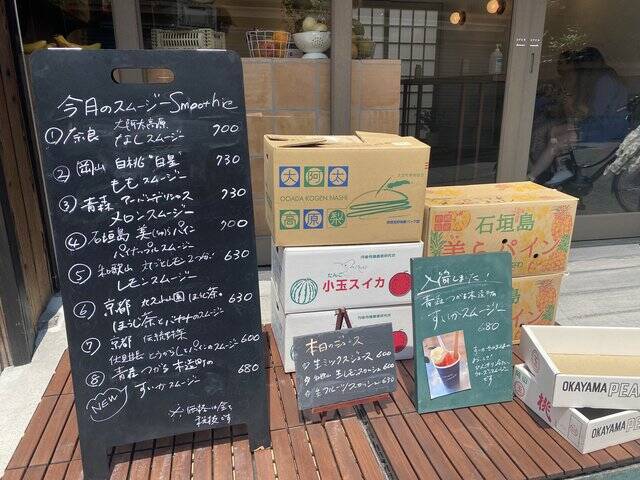 今月のスムージー Smoothie
① 奈良 大阿太高原
なしスムージー 700
② 岡山 白桃"白星"
ももスムージー 730
③ 青森 アーバンデリシャス
メロンスムージー 730
④ 石垣島 美らパイン
パイナップルスムージー 700
⑤ 和歌山 丸ごとレモン2つ分
レモンスムージー 630
⑥ 京都 ほうじ茶
ほうじ茶とバナナのスムージー 630
⑦ 京都 伝統野菜
伏見甘長とうがらしとパインのスムージー 600
⑧ 青森 つがる木造町の
すいかスムージー 680
NEW
※価格は全て
税抜です
大阿太
OOADA KOGEN NASHI
高原梨
小玉スイカ
石垣島
美らパイン
入荷しました!
青森つがる木造町の
すいかスムージー
680
本日のジュース
生ミックスジュース 600
生フルーツスカッシュ 630
OKAYAMA PEA
桃
OKAYAMA PEA